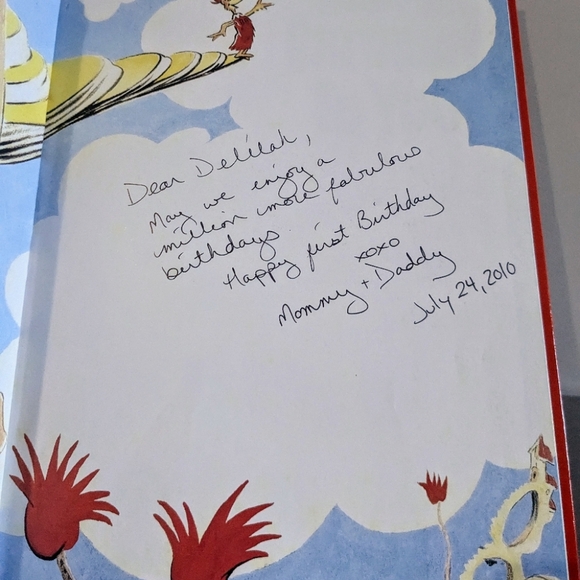 Dear Delilah,
May we enjoy a
million more fabulous
birthdays.
Happy first Birthday
xoxo
Mommy + Daddy
July 24, 2010